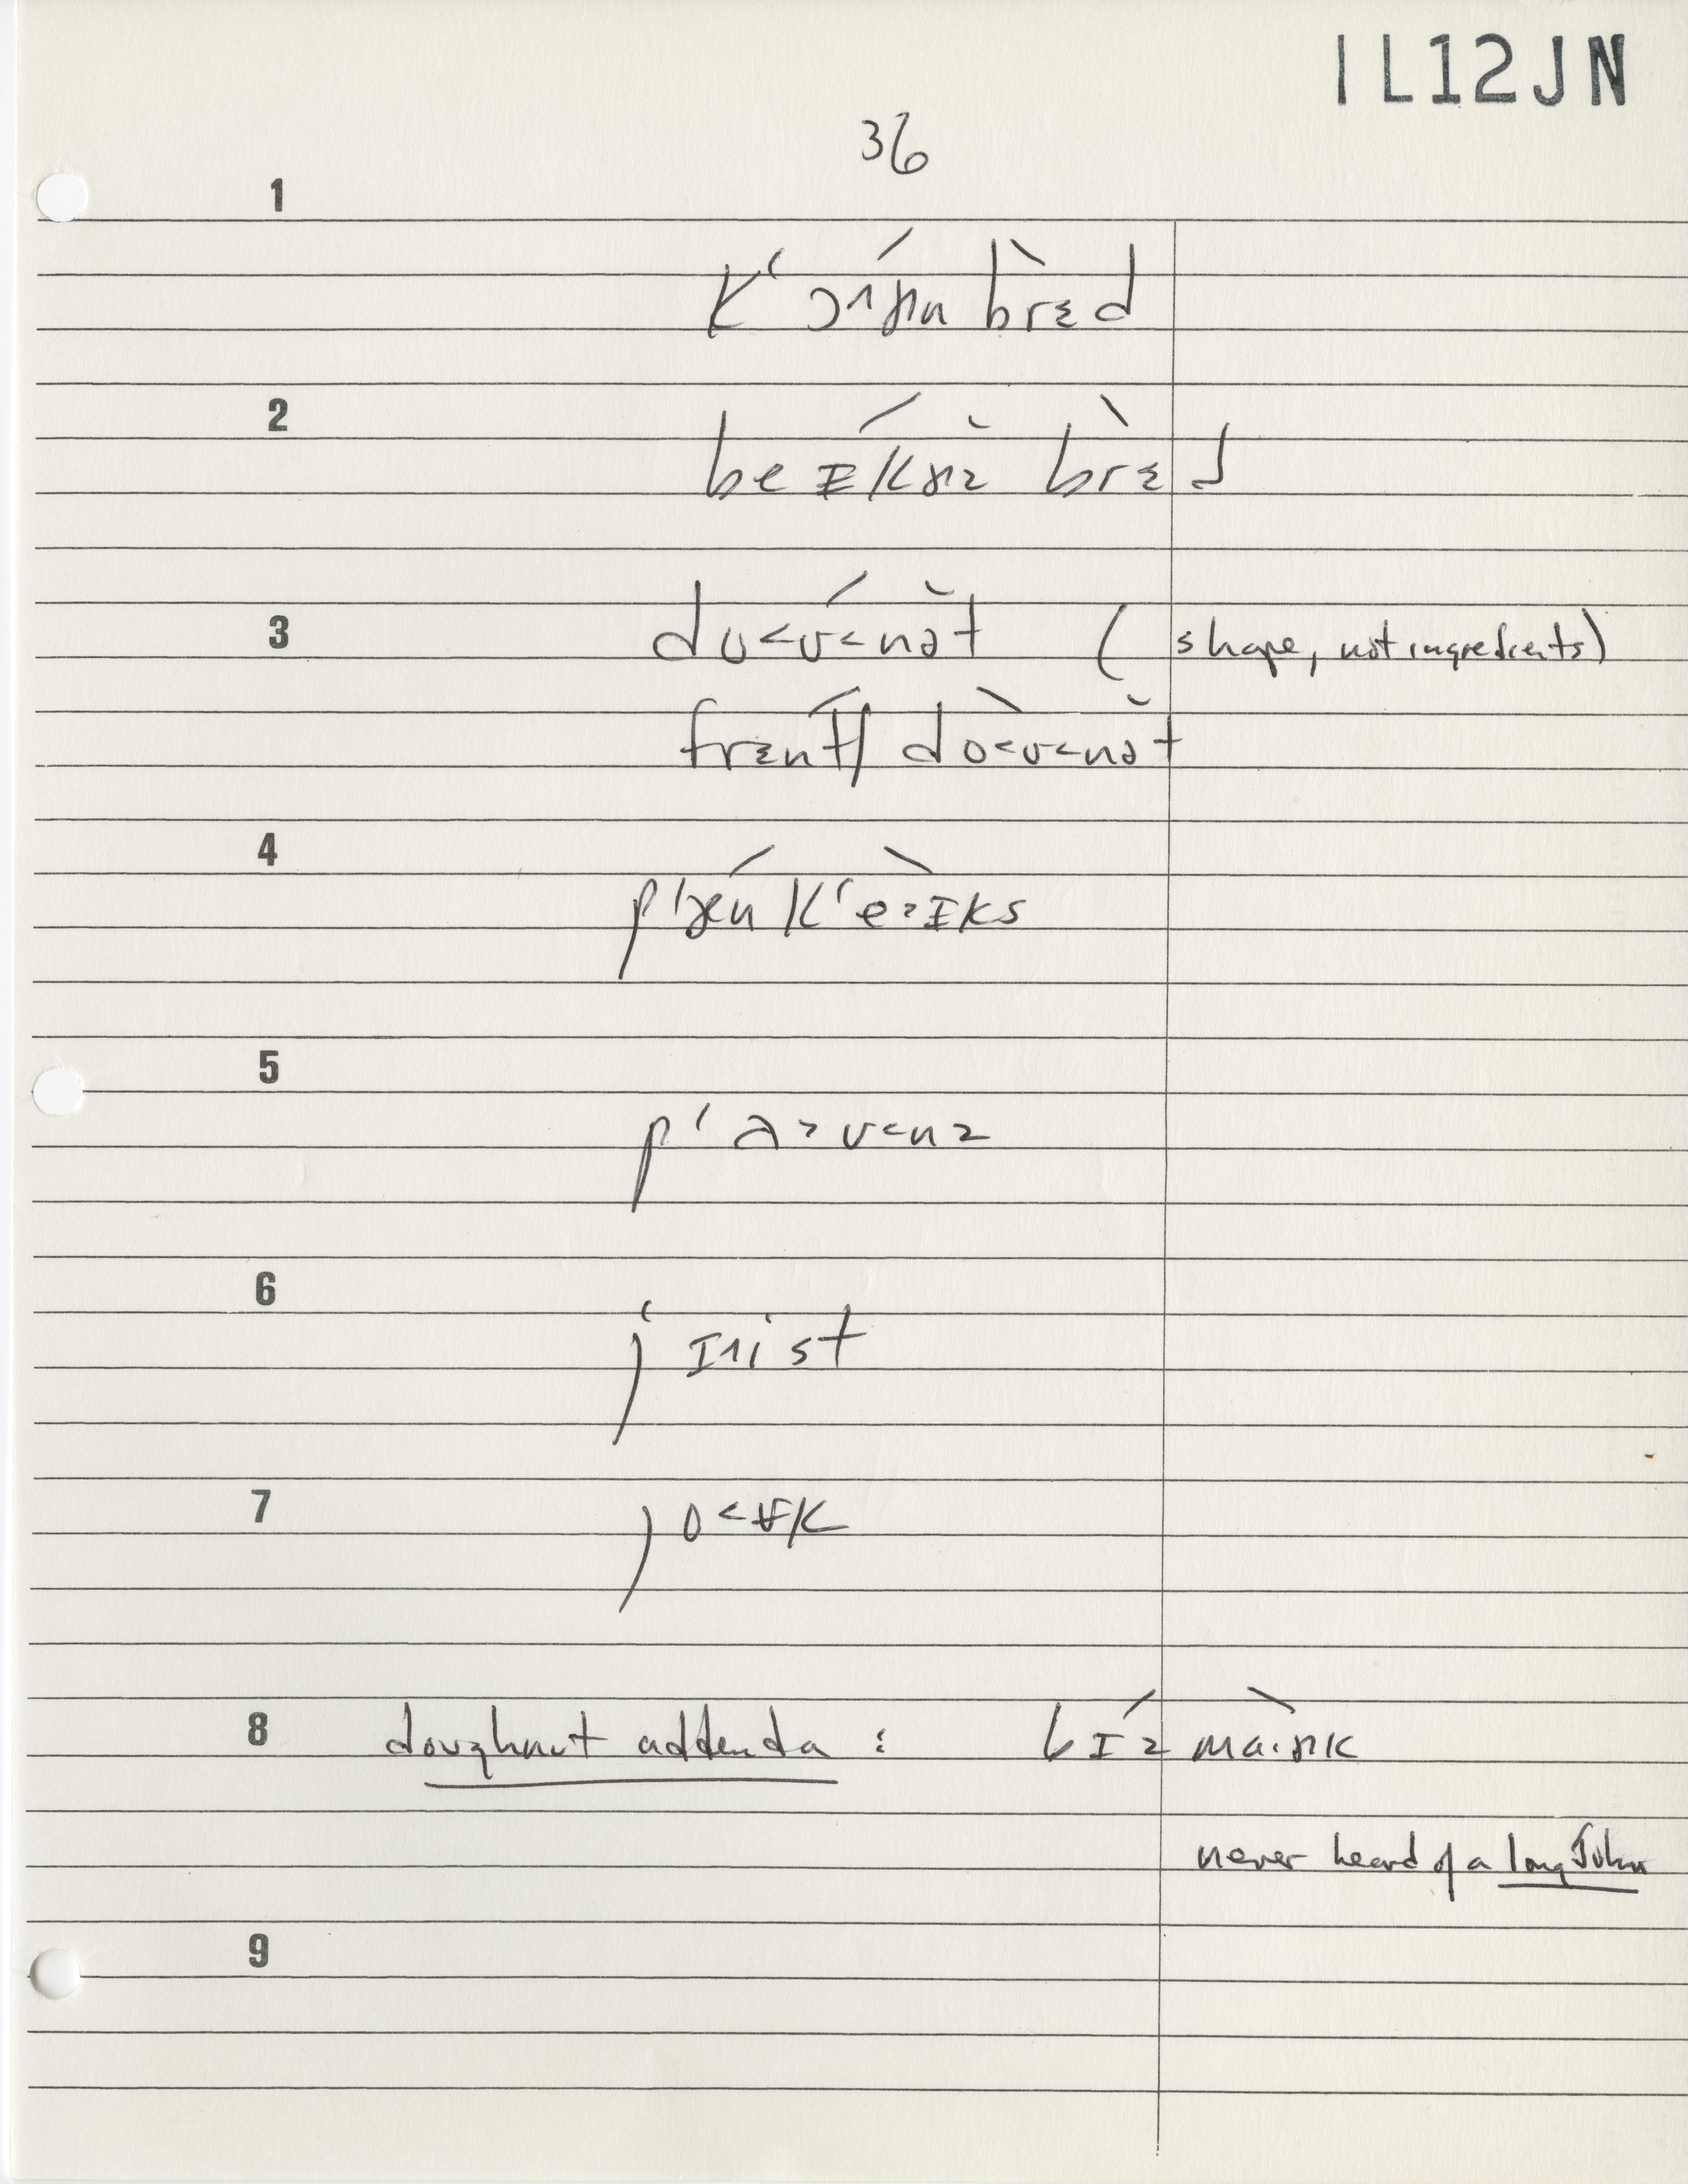 1L12JN
36
1
kʻɔ́˄ɚn brɛ̀d
2
béɪkɚz̆ brɛ̀d
3
dó<ʊ<nə̆t (shape, not ingredients)
frɛ́ntʃ dò<ʊ<nə̆t
4
pʻǽn kʻè>ɪks
5
pʻa>ʊ<nz
6
jɪ˄ist
7
jo<ʊk
8 doughnut addenda : bɪ́z mà·ɚk
never heard of a long John
9